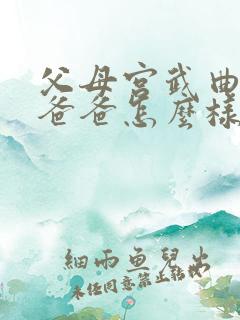 父母宮武曲
爸爸怎麼樣
細雨魚兒出
未經同意禁止轉載